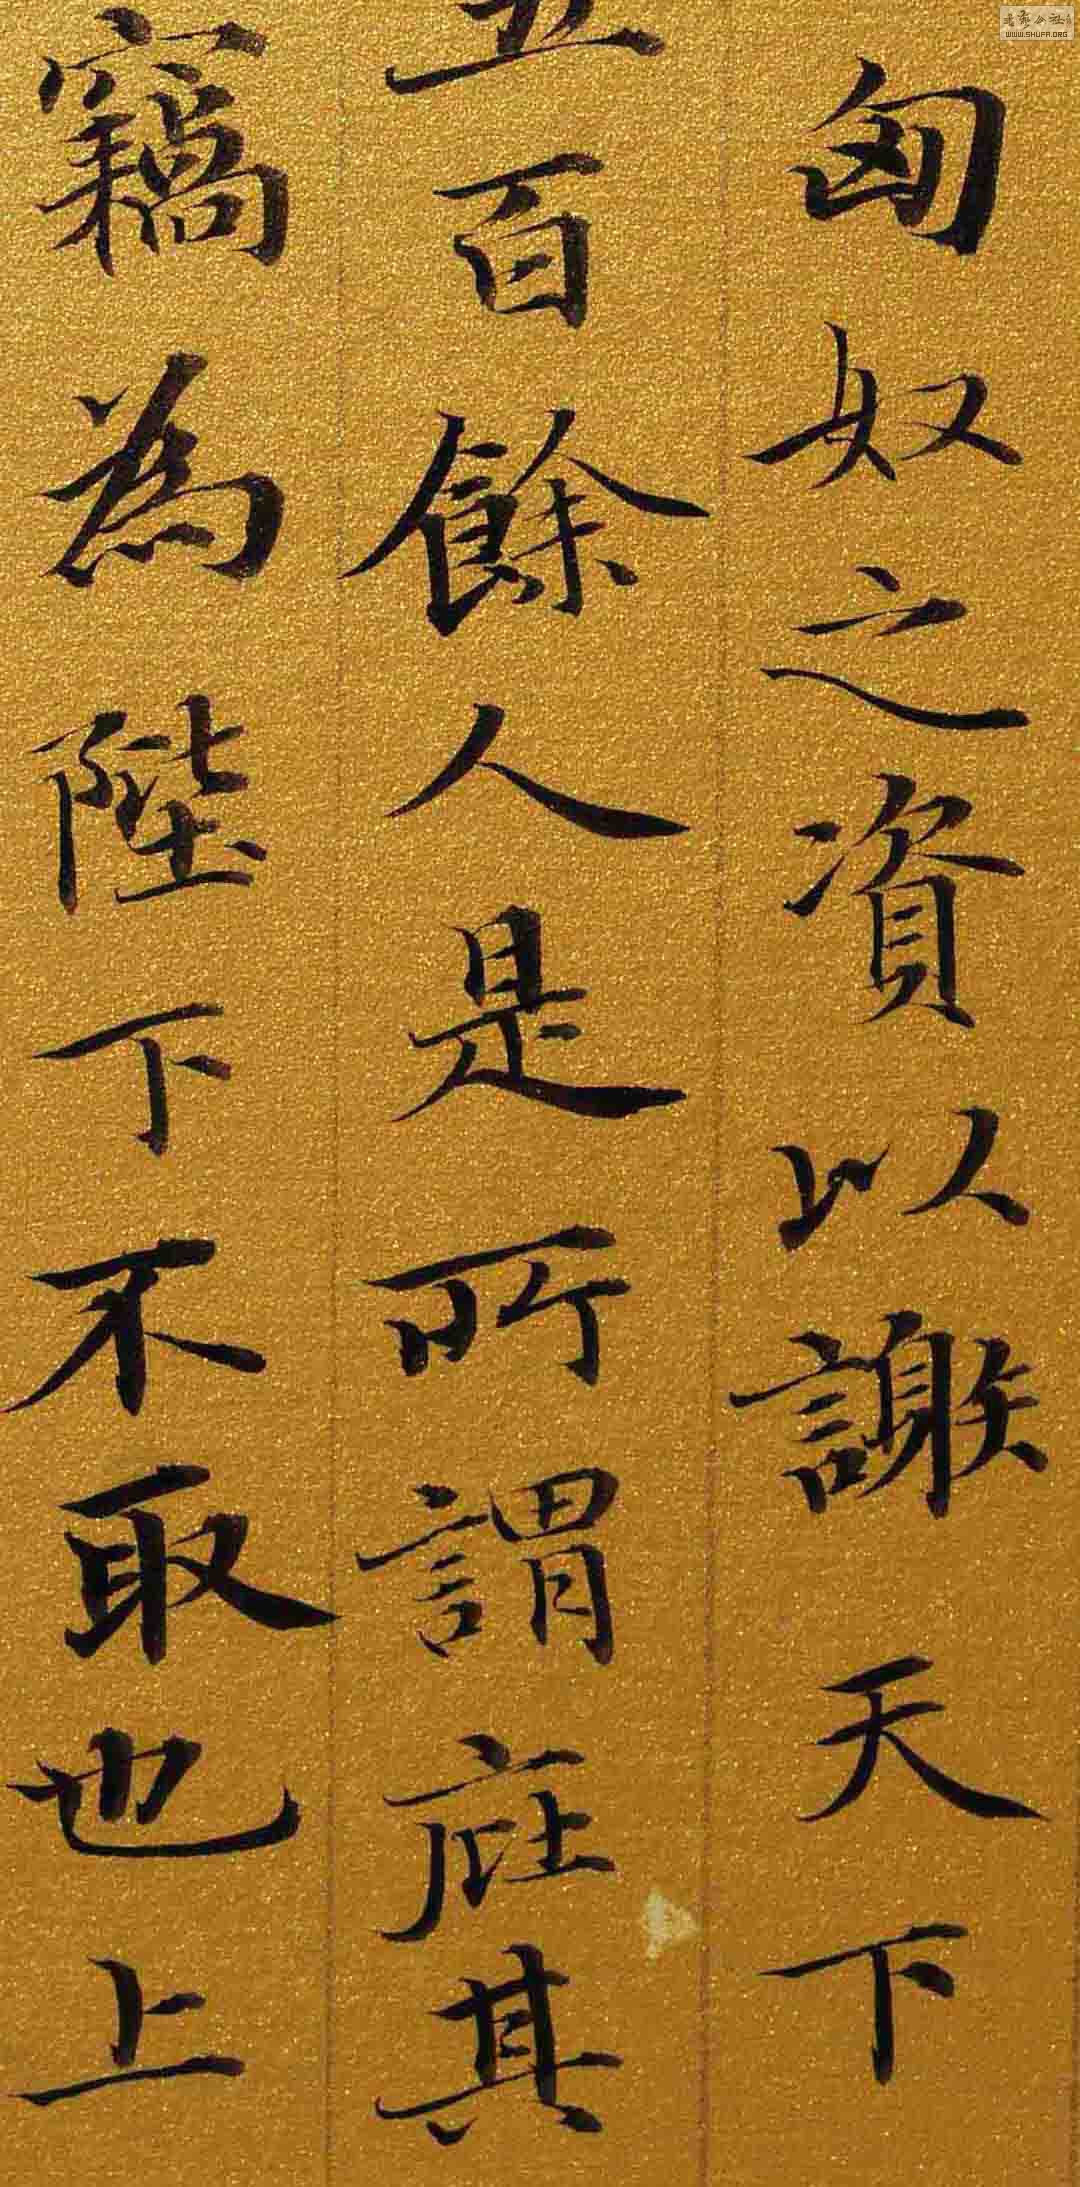 匈奴之資以謝天下
五百餘人是所謂庇其
竊為陛下不取也上
WWW.SHUFA.ORG